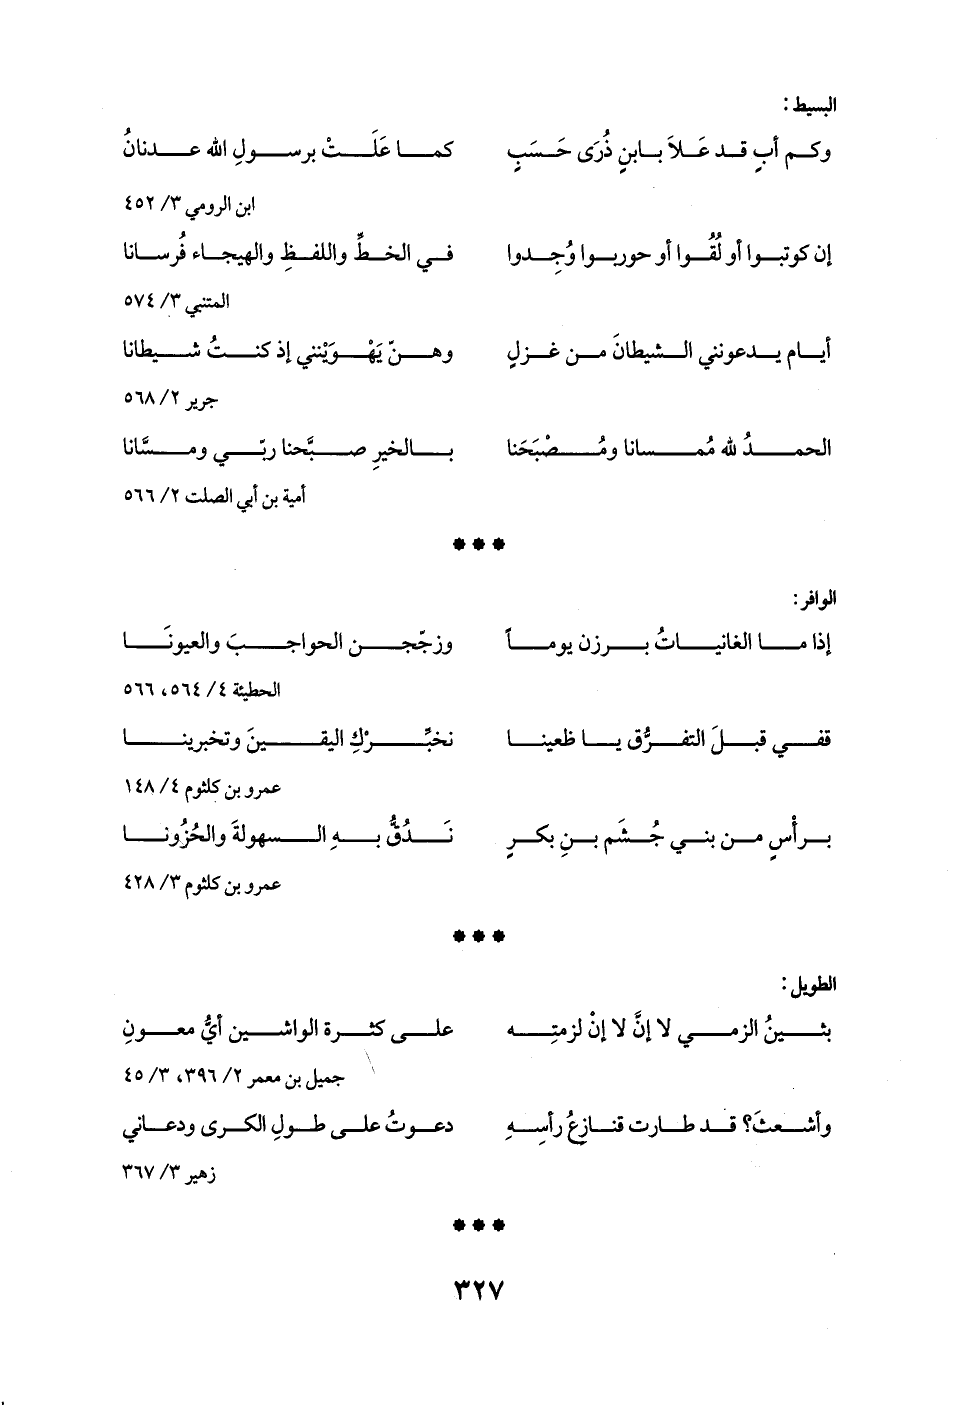 البسيط:
وكم أبٍ قد عَلاَ بابنٍ ذُرَى حَسَبٍ كما عَلَتْ برسولِ الله عدنانُ
ابن الرومي ٣/ ٤٥٢
إن كوتبوا أو لُقُوا أو حوربوا وُجِدوا في الخطِّ واللفظِ والهيجاء فُرسانا
المتنبي ٣/ ٥٧٤
أيام يدعونني الشيطانَ من غزلٍ وهنّ يَهْوَيْنني إذ كنتُ شيطانا
جرير ٢/ ٥٦٨
الحمدُ لله مُمسانا ومُصْبَحَنا بالخيرِ صبَّحنا ربّي ومسَّانا
أمية بن أبي الصلت ٢/ ٥٦٦
***
الوافر:
إذا ما الغانياتُ برزن يوماً وزجّجن الحواجبَ والعيونَا
الحطيئة ٤/ ٥٦٤، ٥٦٦
قفي قبلَ التفرُّق يا ظعينا نخبِّرْكِ اليقينَ وتخبرينا
عمرو بن كلثوم ٤/ ١٤٨
برأْسٍ من بني جُشَم بنِ بكرٍ نَدُقُّ بهِ السهولةَ والحُزُونا
عمرو بن كلثوم ٣/ ٤٢٨
***
الطويل:
بثينُ الزمي لا إنَّ لا إنْ لزمتِه على كثرة الواشين أيُّ معونِ
جميل بن معمر ٢/ ٣٩٦، ٣/ ٤٥
وأشعثَ؟ قد طارت قنازعُ رأسِهِ دعوتُ على طولِ الكرى ودعاني
زهير ٣/ ٣٦٧
***
٣٢٧